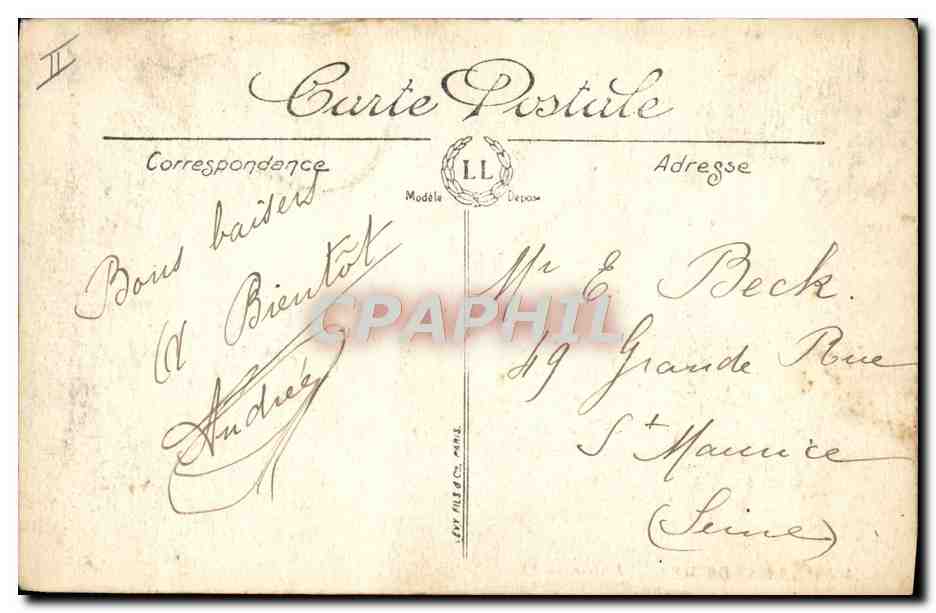 II
Carte Postale
Correspondance
LL
Adresse
Modèle Déposé
Bons baisers
A Bientôt
Andrée
Mr E Beck.
49 Grande Rue
St Maurice
(Seine)
LEVY FILS & Cie, PARIS.
CPAPHIL